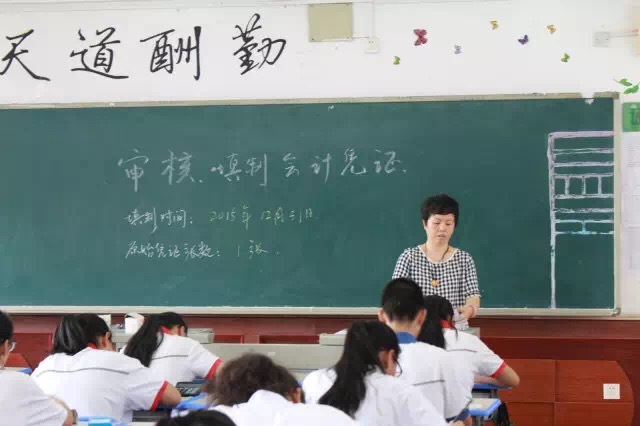 天道酬勤
审核、填制会计凭证.
填制时间: 2015年12月31日
原始凭证张数: 1张.